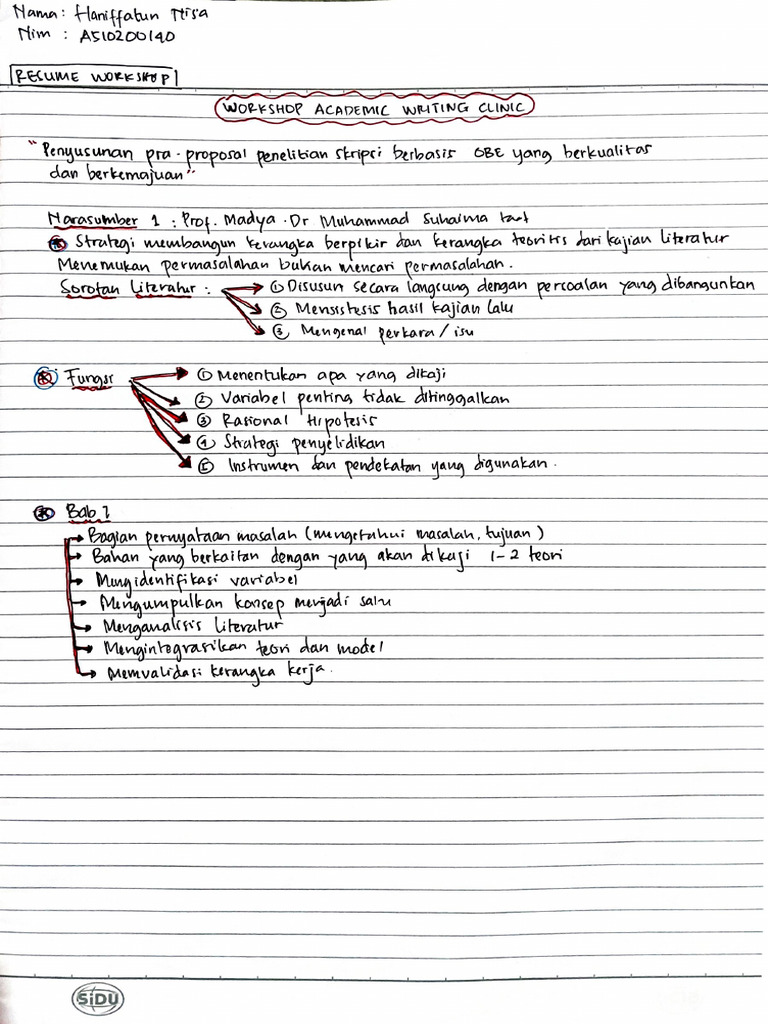 Nama : Haniffatun Nisa
Nim : A510200140
RESUME WORKSHOP
WORKSHOP ACADEMIC WRITING CLINIC
"Penyusunan pra-proposal penelitian skripsi berbasis OBE yang berkualitas
dan berkemajuan"
Narasumber 1 : Prof. Madya. Dr Muhammad Suhaima
Strategi membangun kerangka berpikir dan kerangka teoritis dari kajian literatur
Menemukan permasalahan bukan mencari permasalahan.
Sorotan Literatur : ① Disusun secara langsung dengan persoalan yang dibangunkan
② Mensistesis hasil kajian lalu
③ Mengenal perkara / isu
Fungsi ① Menentukan apa yang dikaji
② Variabel penting tidak ditinggalkan
③ Rasional Hipotesis
④ Strategi penyelidikan
⑤ Instrumen dan pendekatan yang digunakan.
Bab 1
Bagian pernyataan masalah (mengetahui masalah, tujuan)
Bahan yang berkaitan dengan yang akan dikaji 1-2 teori
Mengidentifikasi variabel
Mengumpulkan konsep menjadi satu
Menganalisis literatur
Mengintegrasikan teori dan model
Memvalidasi kerangka kerja.
SiDU